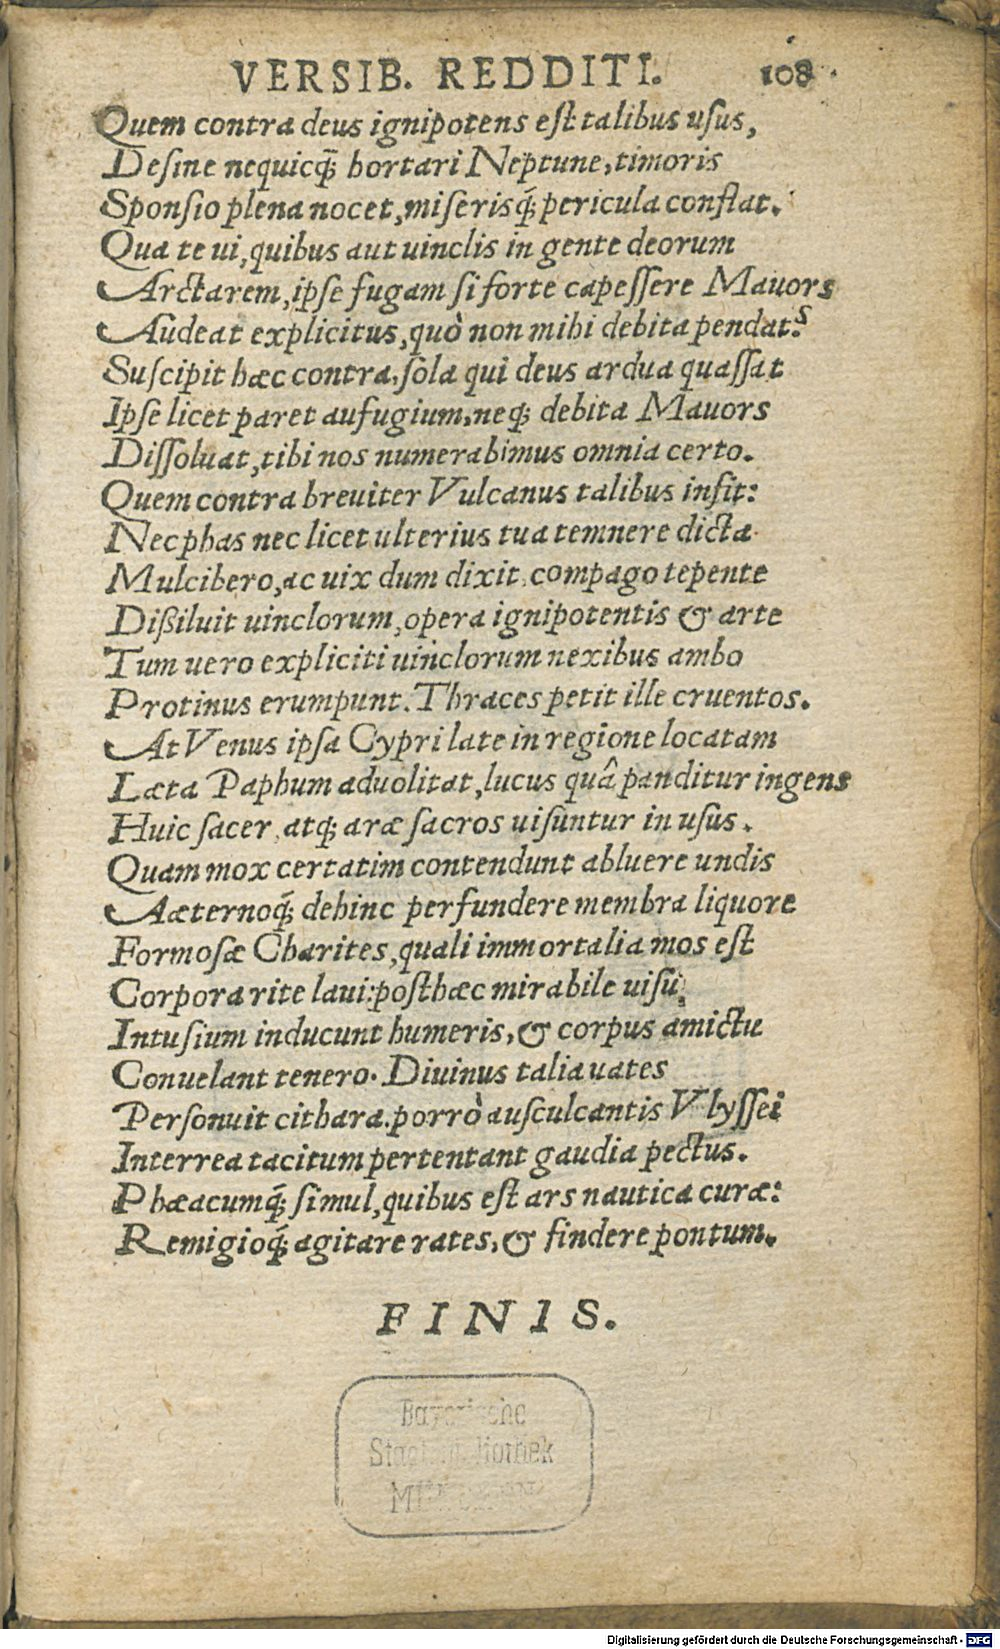 VERSIB. REDDITI. 108
Quem contra deus ignipotens est talibus usus,
Desine nequicq̃ hortari Neptune, timoris
Sponsio plena nocet, miserisq́; pericula conflat.
Qua te ui, quibus aut uinclis in gente deorum
Arctarem, ipse fugam si forte capessere Mauors
Audeat explicitus, quò non mihi debita pendat?
Suscipit hæc contra, sola qui deus ardua quassat
Ipse licet paret aufugium, neq; debita Mauors
Dissoluat, tibi nos numerabimus omnia certo.
Quem contra breuiter Vulcanus talibus infit:
Nec phas nec licet ulterius tua temnere dicta
Mulcibero, ac uix dum dixit, compago tepente
Dißiluit uinclorum, opera ignipotentis & arte
Tum uero expliciti uinclorum nexibus ambo
Protinus erumpunt. Thraces petit ille cruentos.
At Venus ipsa Cypri late in regione locatam
Læta Paphum aduolitat, lucus quâ panditur ingens
Huic sacer, atq; aræ sacros uisuntur in usus.
Quam mox certatim contendunt abluere undis
Aeternoq́; dehinc perfundere membra liquore
Formosæ Charites, quali immortalia mos est
Corpora rite laui: posthæc mirabile uisu,
Intusium inducunt humeris, & corpus amictu
Conuelant tenero. Diuinus talia uates
Personuit cithara. porrò ausculcantis Vlyssei
Interrea tacitum pertentant gaudia pectus.
Phæacumq́; simul, quibus est ars nautica curæ:
Remigioq́; agitare rates, & findere pontum.
FINIS.
Bayerische
Staatsbibliothek
MÜNCHEN
Digitalisierung gefördert durch die Deutsche Forschungsgemeinschaft - DFG